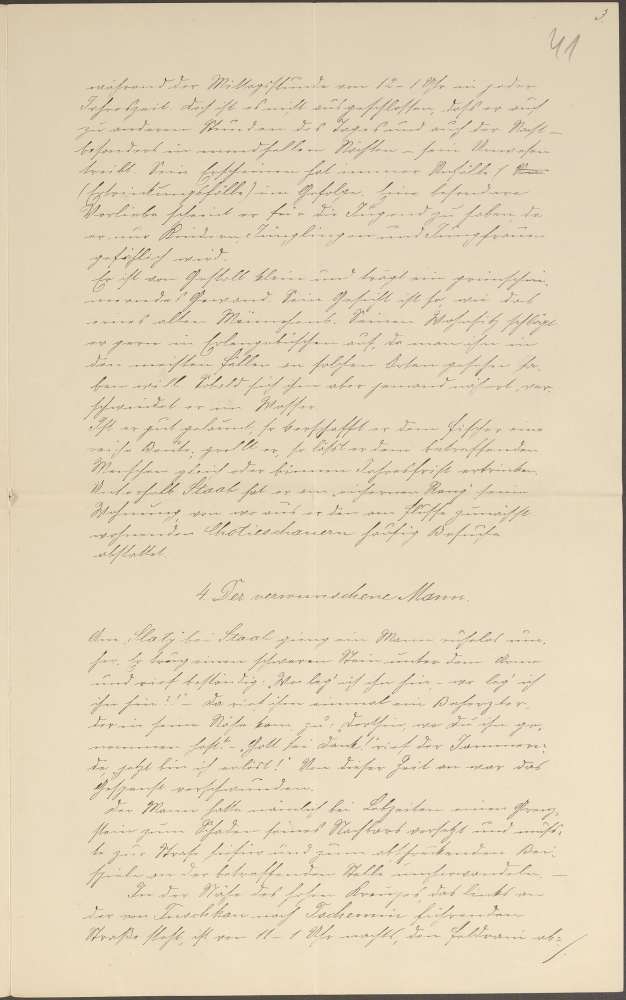 3.
41
während der Mittagsstunde von 12-1 Uhr in jeder
Jahreszeit. Doch ist es nicht ausgeschlossen, daß er auch
zu anderen Stunden des Tages und auch der Nacht -
besonders in mondhellen Nächten - sein Unwesen
treibt. Sein Erscheinen hat immer Unfälle (
(Ertrinkungsfälle) im Gefolge. Eine besondere
Vorliebe scheint er für die Jugend zu haben, da
er nur Kindern, Jünglingen und Jungfrauen
gefährlich wird.
Er ist von Gestalt klein und trägt ein grünschim-
merndes Gewand. Sein Gesicht ist so, wie das
eines alten Männchens. Seinen Wohnsitz schlägt
er gern in Erlengebüschen auf, da man ihn in
den meisten Fällen an solchen Orten gesehen ha-
ben will. Sobald sich ihm aber jemand nähert, ver-
schwindet er im Wasser.
Ist er gut gelaunt, so verschafft er dem Fischer eine
reiche Beute; grollt er, so läßt er den betreffenden
Menschen gleich oder binnen Jahresfrist ertrinken.
Unterhalb Staab hat er am eisernen Steg seine
Wohnung, von wo aus er den am Flusse zunächst
wohnenden Chotieschauern häufig Besuche
abstattet.
4. Der verwunschene Mann.
Am Slatz bei Staab ging ein Mann ruhelos um-
her. Er trug einen schweren Stein unter dem Arme
und rief beständig: „Wo leg' ich ihn hin, - wo leg' ich
ihn hin?!" - Da rief ihm einmal ein Beherzter,
der in seine Nähe kam, zu: „Dorthin, wo Du ihn ge-
nommen hast." - „Gott sei Dank!" rief der Jammern-
de, „jetzt bin ich erlöst!" Von dieser Zeit an war das
Gespenst verschwunden.
Der Mann hatte nämlich bei Lebzeiten einen Grenz-
stein zum Schaden seines Nachbars versetzt und muß-
te zur Strafe hiefür und zum abschreckenden Bei-
spiele an der betreffenden Stelle umherwandeln. -
In der Nähe des hohen Kreuzes, das links an
der von Tuschkau nach Tschemin führenden
Straße steht, ist von 11-1 Uhr nachts, den Feldrain ab-